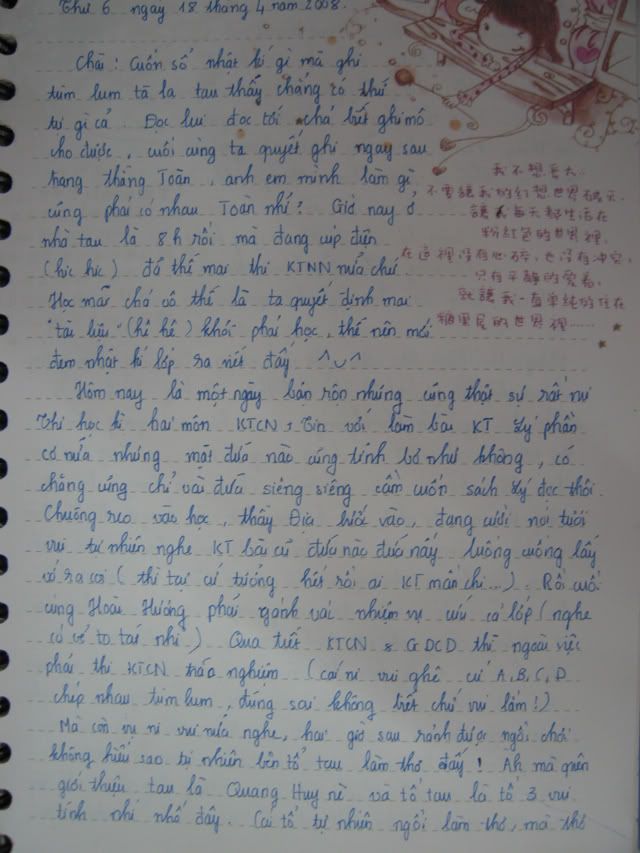 Thứ 6 ngày 18 tháng 4 năm 2008.
Chài! Cuốn sổ nhật kí gì mà ghi
tùm lum tà la tau thấy chẳng có thứ
tự gì cả. Đọc lui đọc tới chả biết ghi mô
cho được, cuối cùng ta quyết ghi ngay sau
hạng thằng Toàn, anh em mình làm gì
cũng phải có nhau Toàn nhỉ? Giờ nay ở
nhà tau là 8h rồi mà đang cúp điện
(hic hic) đã thế mai thi KTNN nữa chứ
Học mãi chả vô thế là ta quyết định mai
"tài liệu" (hề hề) khỏi phải học, thế nên mới
đem nhật kí lớp ra nét đấy ^◡^
Hôm nay là một ngày bận rộn nhưng cũng thật sự rất vui
Thi học kì hai môn KTCN, Tin với làm bài KT Lý phần
cơ nữa nhưng mặt đứa nào cũng tỉnh bơ như không, có
chăng cũng chỉ vài đứa siêng siêng cầm cuốn sách Lý đọc thôi.
Chuông reo vào học, thầy Địa bước vào, đang cười nói tươi
vui tự nhiên nghe KT bài cũ đứa nào đứa nấy luống cuống lấy
vở ra coi (thì tau cứ tưởng hết rồi ai KT mần chi...) Rồi cuối
cùng Hoài Hương phải gánh vai nhiệm vụ cứu cả lớp (nghe
có vẻ to tát nhỉ) Qua tiết KTCN & GDCD thì ngoài việc
phải thi KTCN trắc nghiệm (cái ni vui ghê cứ A, B, C, D
chép nhau tùm lum, đúng sai không biết chứ vui lắm!)
Mà còn vụ ni vui nữa nghe, hai giờ sau rảnh được ngồi chơi
không hiểu sao tự nhiên bên tổ tau làm thơ đấy! Ah mà quên
giới thiệu tau là Quang Huy nè và tổ tau là tổ 3 vui
tính nhí nhố đây. Cái tổ tự nhiên ngồi làm thơ, mà thơ
我不想長大
不要讓我的幻想世界破滅
讓我每天都生活在
粉紅色的世界裡
在這裡沒有心碎，也沒有沖突，
只有平靜的愛着，
就讓我一直單純的住在
糖果屋的世界裡......